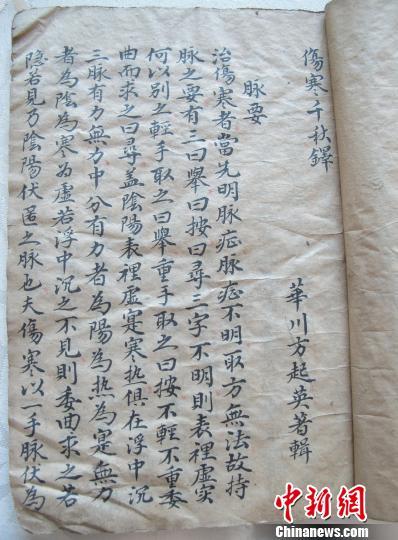 傷寒千秋鐸
華川方起英著輯
脉要
治傷寒者當先明脉症脉症不明取方無法故持
脉之要有三曰舉曰按曰尋三字不明則表裡虛實
何以別之輕手取之曰舉重手取之曰按不輕不重委
曲而求之曰尋盖陰陽表裡虛寔寒热俱在浮中沉
三脉有力無力中分有力者為陽為热為寔無力
者為陰為寒為虛若浮中沉之不見則委曲求之若
隐若見乃陰陽伏匿之脉也夫傷寒以一手脉伏為
中新网
www.chinanews.com